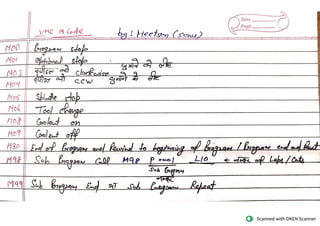 Date
Page
VMC M Code by : Heetson (sonu)
M00 Program stop
M01 optional stop
M03 स्पिंडल को clockwise घुमाने के लिए
M04 स्पिंडल को CCW घुमाने के लिए
M05 Spindle stop
M06 Tool change
M08 Coolent on
M09 Coolent off
M30 End of Program and Rewind to beginning of Program / Program end and Reset
M98 Sub Program Call M98 P L10 ← नम्बर of Labs / Cuts
Sub Program
नम्बर
M99 Sub Program End या Sub Program Repeat
Scanned with OKEN Scanner